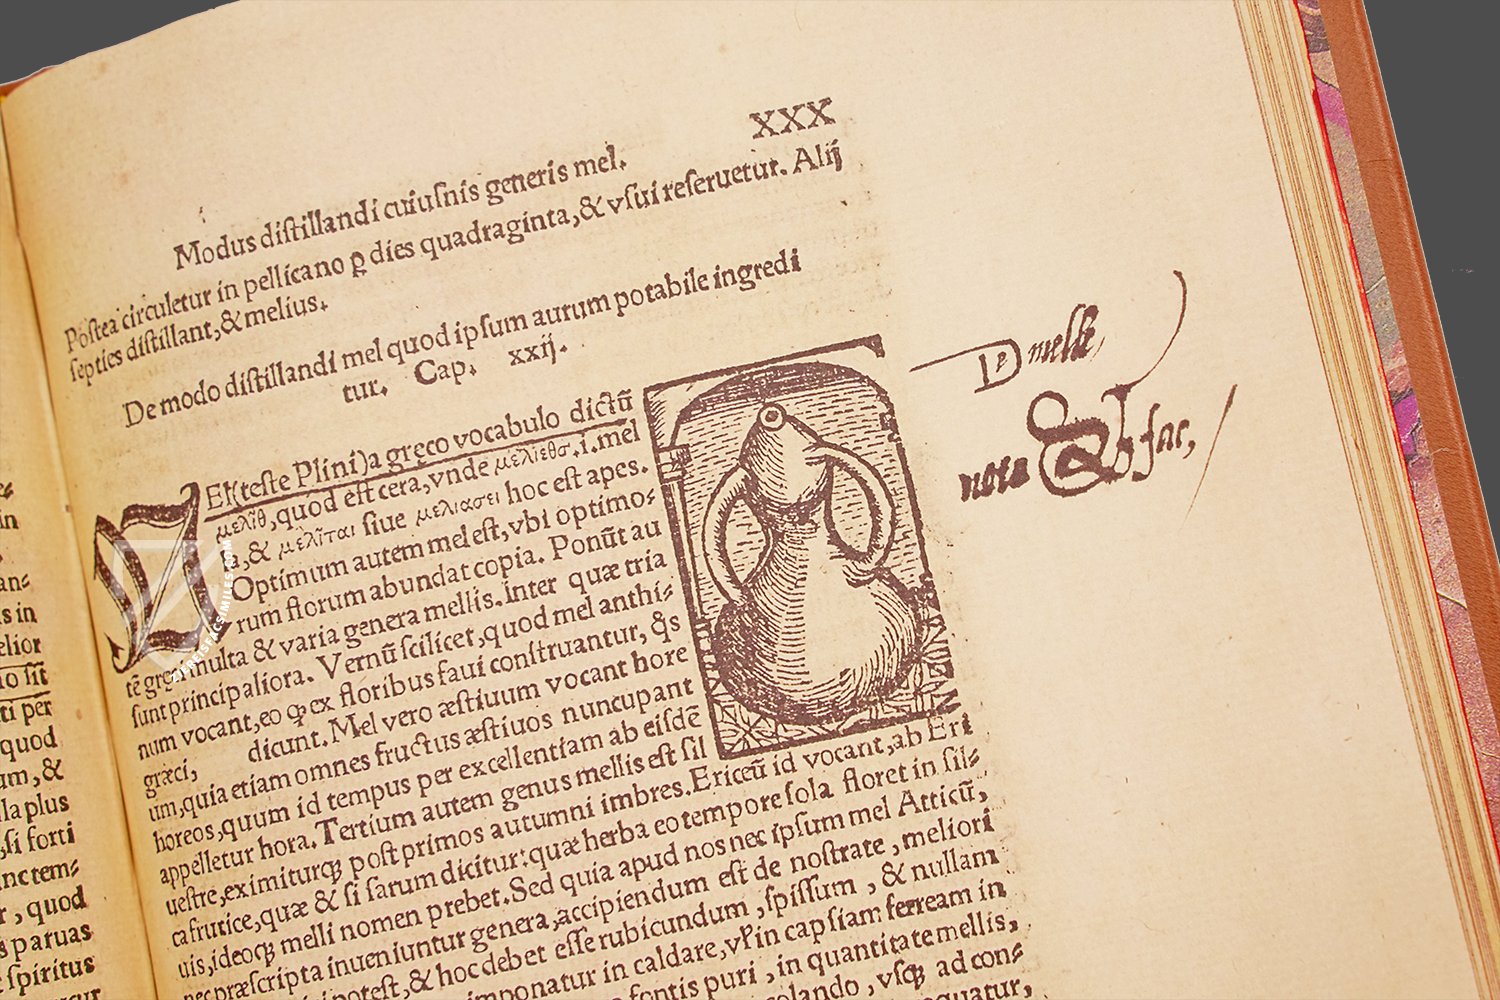 XXX
Modus diſtillandi cuiuſnis generis mel.
Poſtea circuletur in pellicano ꝑ dies quadraginta,& vſui reſeruetur. Alij
ſepties diſtillant,& melius.
De modo diſtillandi mel quod ipſum aurum potabile ingredi
tur. Cap. xxij.
El(teſte Plini)a gręco vocabulo dictū
μελιθ,quod eſt cera,vnde μελιεθσ.i.mel
,& μελῖται ſiue μελιασει hoc eſt apes.
Optimum autem mel eſt,vbi optimo-
rum florum abundat copia. Ponūt au
tē gręci multa & varia genera mellis.Inter quæ tria
ſunt principaliora. Vernū ſcilicet,quod mel anthi-
num vocant,eo ꝙ ex floribus faui conſtruantur, q̃s
græci, dicunt. Mel vero æſtiuum vocant hore
um,quia etiam omnes fructus æſtiuos nuncupant
horeos,quum id tempus per excellentiam ab eiſdē
appelletur hora.Tertium autem genus mellis eſt ſil
ueſtre,eximiturqꝫ poſt primos autumni imbres.Ericeū id vocant,ab Eri
ca frutice,quæ & ſi ſarum dicitur:quæ herba eo tempore ſola floret in ſil-
uis,ideoqꝫ melli nomen prebet.Sed quia apud nos nec ipſum mel Atticū,
nec præſcripta inueniuntur genera,accipiendum eſt de noſtrate , meliori
poteſt,& hoc debet eſſe rubicundum ,ſpiſſum , & nullam
imponatur in caldare,vl in capſiam ferream in
fontis puri , in quantitate mellis,
colando , vſqꝫ ad con-
quatur,
De melle
nota
fac,
in
an-
s in
elior
no ſit
ti per
quod
um,&
lla plus
,ſi forti
nc tem-
r , quod
s paruas
ſpiritus
ZIEREISFACSIMILES.COM